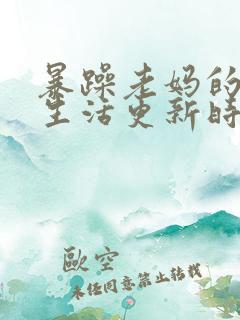 暴躁老妈的
生活更新时
歐空
未经同意禁止转载